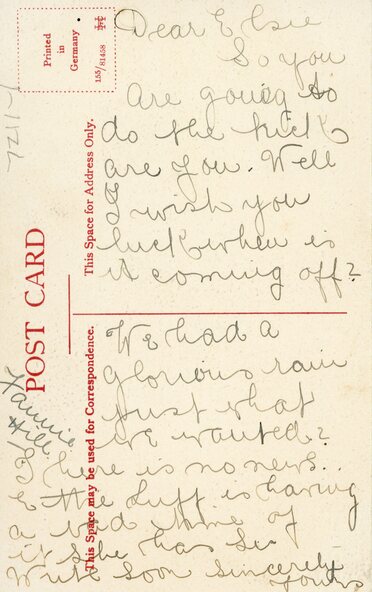 Printed
in
Germany
155/81458
POST CARD
This Space for Address Only.
This Space may be used for Correspondence.
Dear Elsie
So you
are going to
do the trick
are you. Well
I wish you
luck when is
it coming off?
We had a
glorious rain
just what
we wanted?
There is no news.
Duff is having
a bad time of
it she has
Write soon sincerely
yours
Hill